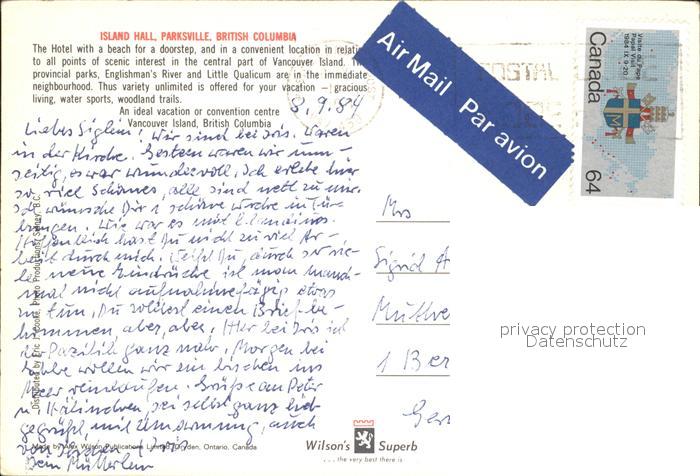 ISLAND HALL, PARKSVILLE, BRITISH COLUMBIA
The Hotel with a beach for a doorstep, and in a convenient location in relatio
to all points of scenic interest in the central part of Vancouver Island.
provincial parks, Englishman's River and Little Qualicum are in the immediate
neighbourhood. Thus variety unlimited is offered for your vacation — gracious
living, water sports, woodland trails.
An ideal vacation or convention centre
Vancouver Island, British Columbia
8.9.84
Wir sind bei Waren
in der Kirche. Gestern waren wir
es war wundervoll. Ich erlebe hier
so viel Schönes, alle sind nett zu mir.
wünsche Dir 1 schöne Woche in
Wie war es mit
Hoffentlich hast Du nicht zu viel Ar-
beit durch mich. Weißt Du, durch so vie-
le neue Eindrücke ist man manch-
mal nicht aufnahmefähig etwas
zu tun, Du solltest einen Brief be-
kommen aber, aber. Hier bei ist ich
Pazifik ganz nahe, Morgen bei
wollen wir ein bischen ins
Meer Grüße an Peter
sei selbst ganz lieb
gegrüßt mit Umarmung, auch
von
Dein Mütterlein
Distributed by Eric J. Cooke, Photo Productions, Sidney, B.C.
Made by Alex Wilson Publications Limited, Dryden, Ontario, Canada
Air Mail Par avion
POSTAL
CODE
Visite du Pape
Papal Visit
1984 IX 9-20
Canada
64
Mrs
Sigrid A
1 Ber
Ger
privacy protection
Datenschutz
Wilson's Superb
... the very best there is